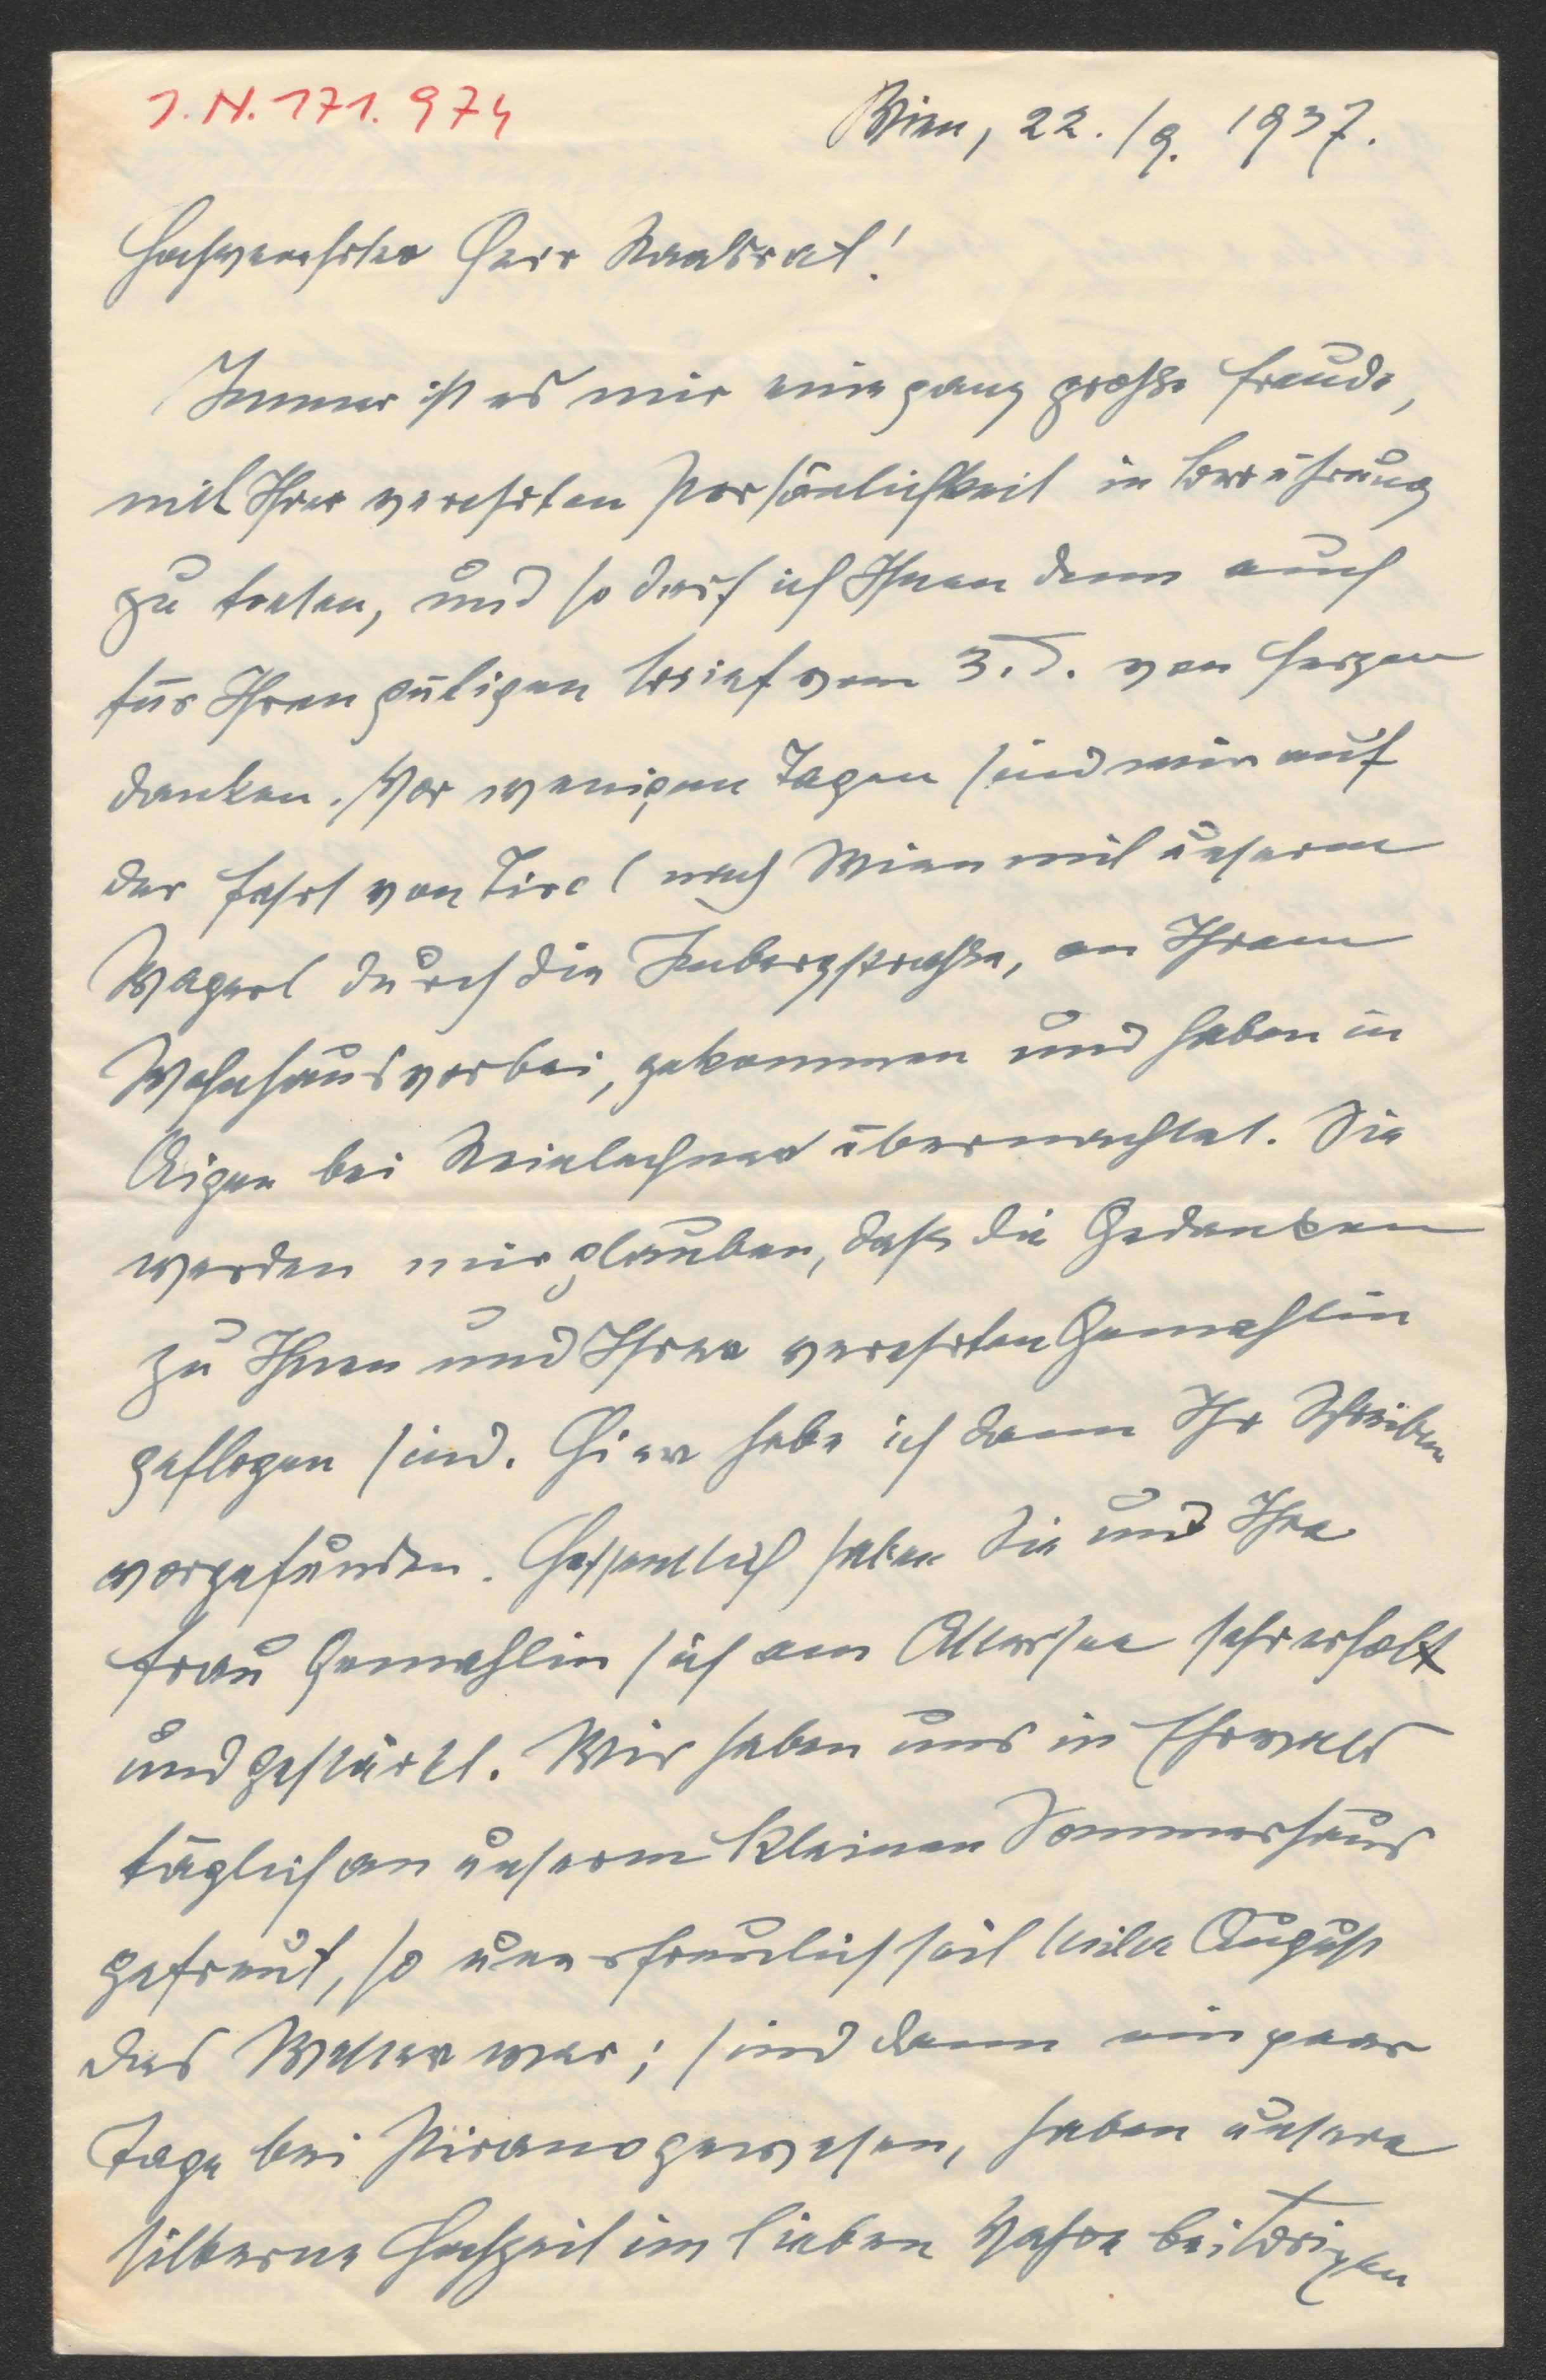 J.N. 171.974
Wien, 22./9. 1937.
Hochverehrter Herr Staatsrat!
Immer ist es mir eine ganz große Freude,
mit Ihrer verehrten Persönlichkeit in Berührung
zu treten, und so darf ich Ihnen denn auch
für Ihren gütigen Brief vom 3. d. von Herzen
danken. Vor wenigen Tagen sind wir auf
der Fahrt von Tirol nach Wien mit unserem
Wagerl durch die Imbergstraße, an Ihrem
Wohnhaus vorbei, gekommen und haben in
Aigen bei übernachtet. Sie
werden mir glauben, daß die Gedanken
zu Ihnen und Ihrer verehrten Gemahlin
geflogen sind. Hier habe ich dann Ihr Schreiben
vorgefunden. Hoffentlich haben Sie und Ihre
Frau Gemahlin sich am Attersee sehr erholt
und gestärkt. Wir haben uns in Ehrwald
täglich an unserem kleinen Sommerhaus
gefreut, so unerfreulich seit Mitte August
das Wetter war; sind dann ein paar
Tage bei Pirano gewesen, haben unsere
silberne Hochzeit im lieben Vahrn bei Brixen